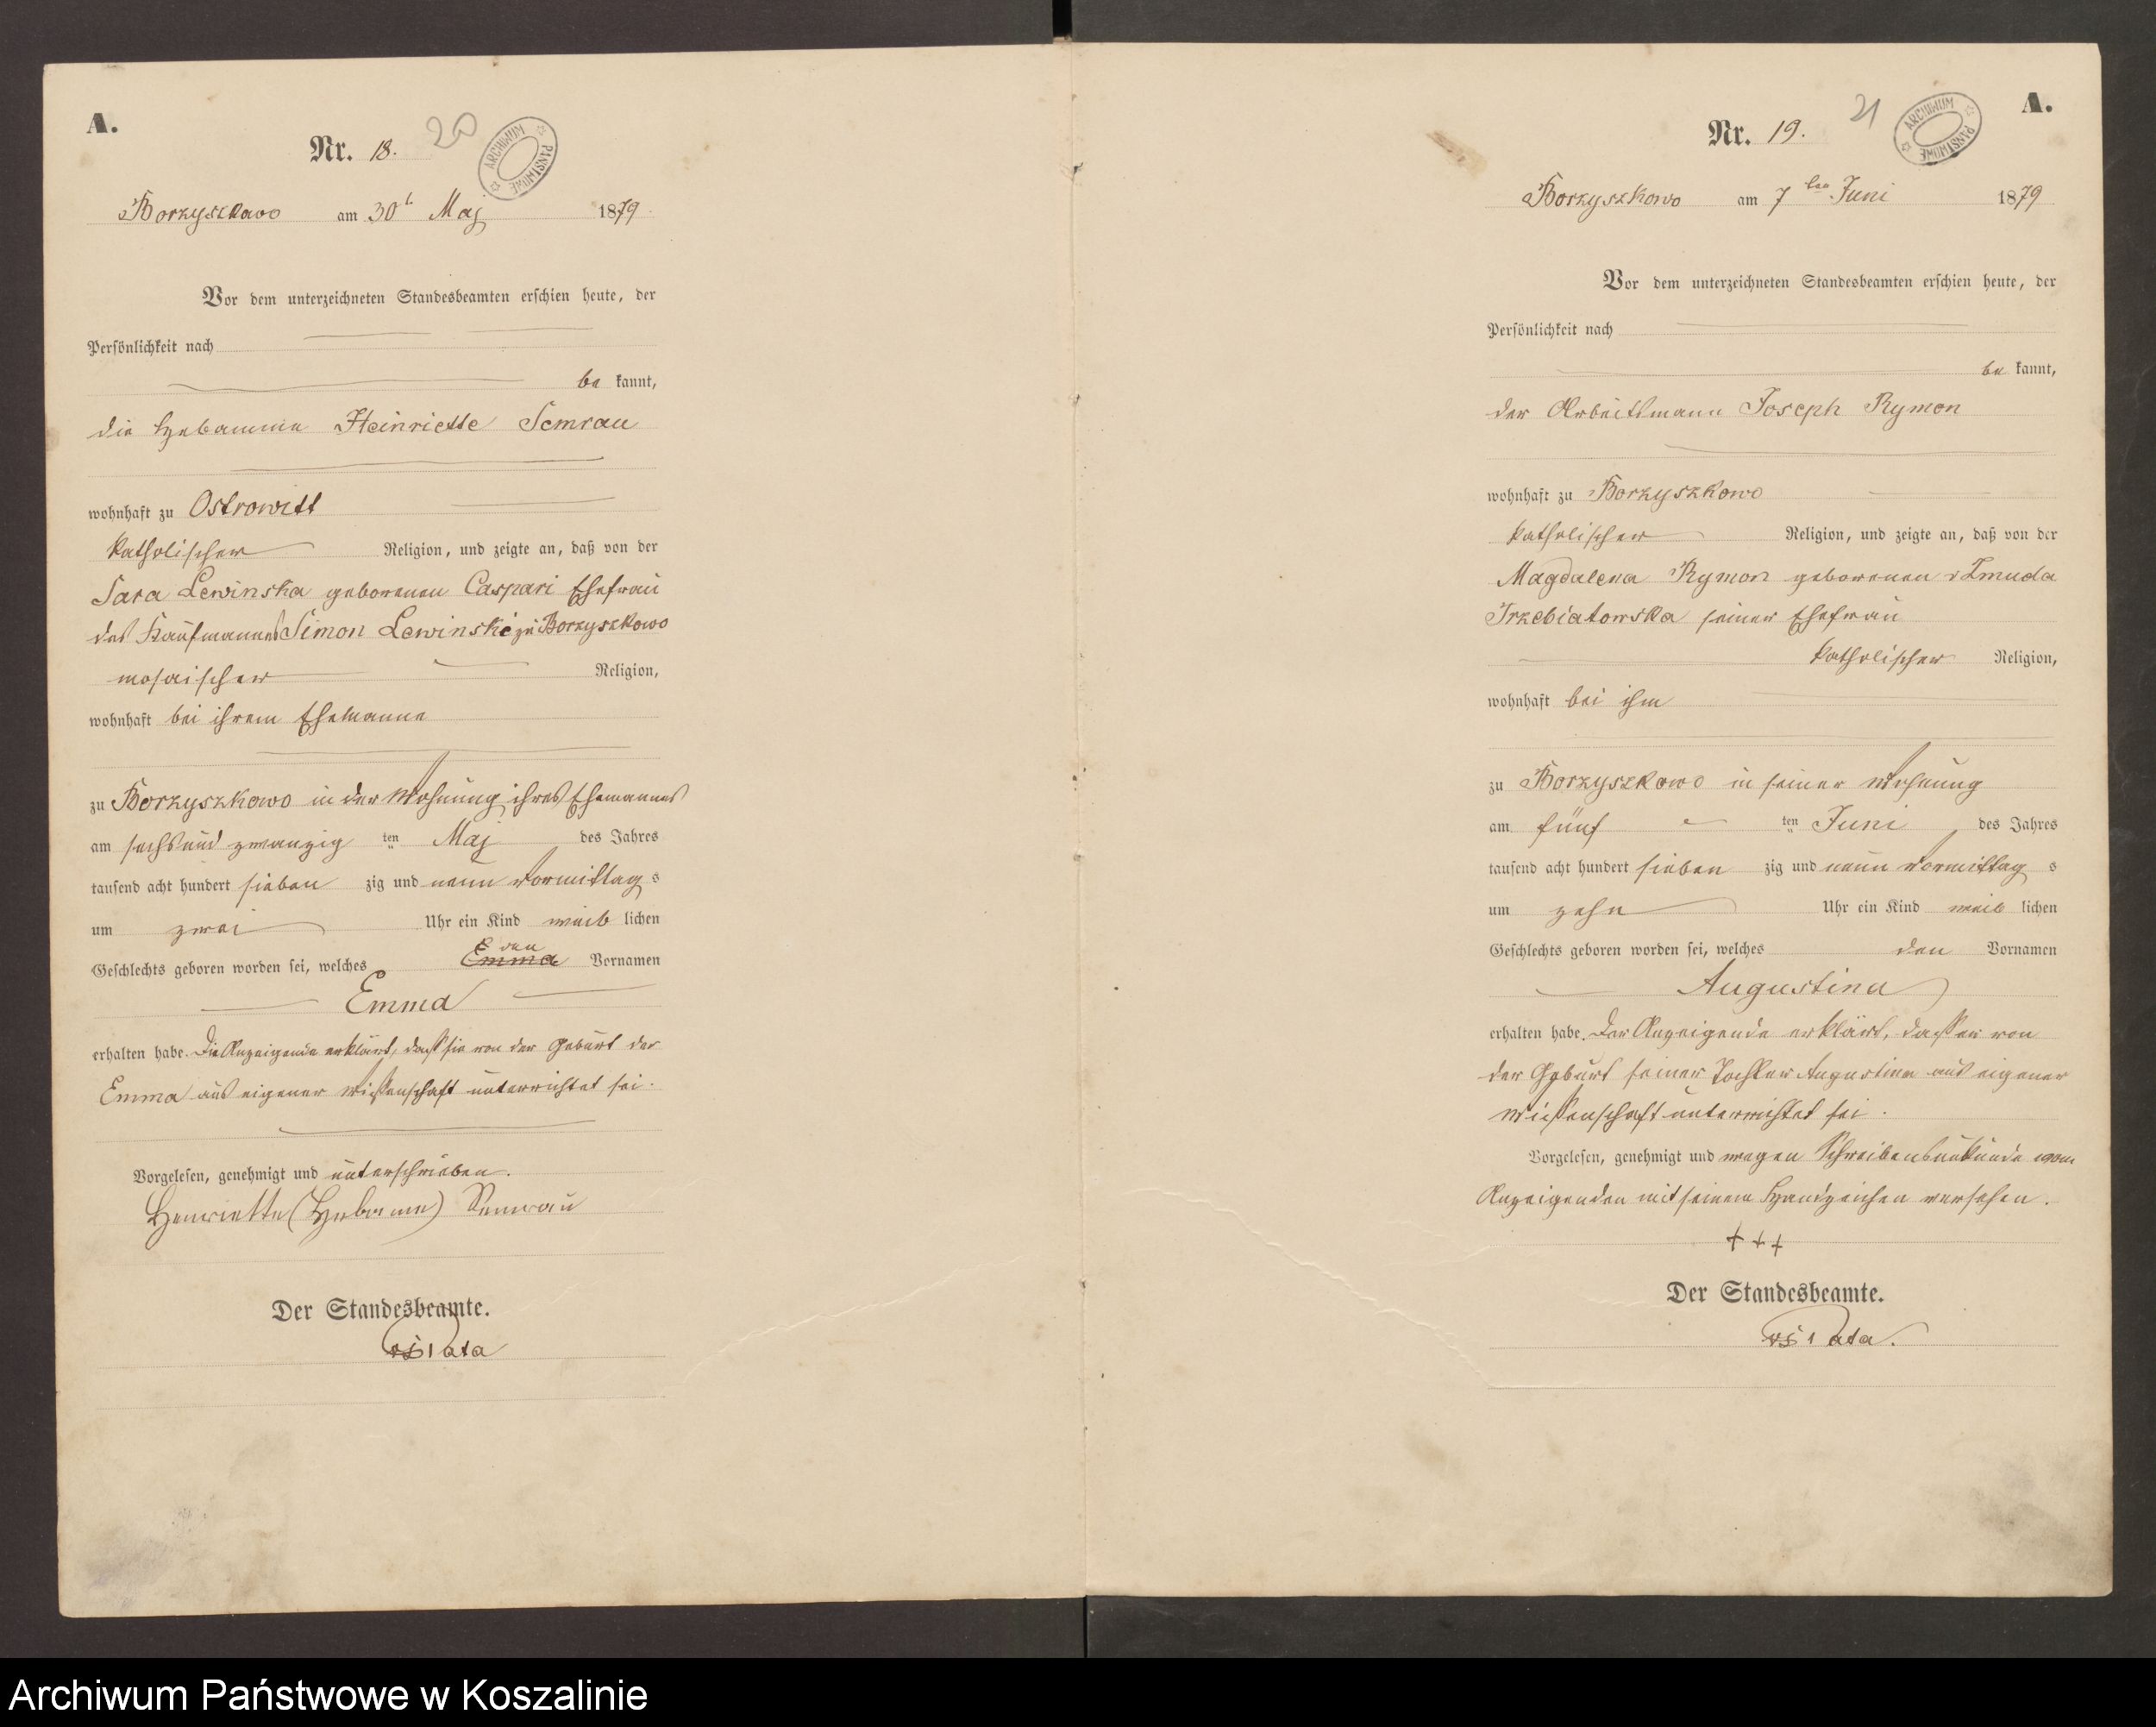 A.
Nr. 18.
20
ARCHIWUM PAŃSTWOWE
Borzyszkowo am 30t Maj 1879.
Vor dem unterzeichneten Standesbeamten erschien heute, der
Persönlichkeit nach
be kannt,
die Hebamme Heinriette Semrau
wohnhaft zu Ostrowitt
katholischer Religion, und zeigte an, daß von der
Sara Lewinska geborenen Caspari Ehefrau
des Kaufmannes Simon Lewinski zu Borzyszkowo
mosaischer Religion,
wohnhaft bei ihrem Ehemanne
zu Borzyszkowo in der Wohnung ihres Ehemannes
am sechsundzwanzig ten Maj des Jahres
tausend acht hundert sieben zig und neun Vormittag s
um zwei Uhr ein Kind weib lichen
den
Geschlechts geboren worden sei, welches Emma Vornamen
Emma
erhalten habe. Die Anzeigende erklärt, dass sie von der Geburt der
Emma aus eigener Wissenschaft unterrichtet sei.
Vorgelesen, genehmigt und unterschrieben.
Henriette (Hebame) Semrau
Der Standesbeamte.
A.
Nr. 19.
21
ARCHIWUM PAŃSTWOWE
Borzyszkowo am 7ten Juni 1879
Vor dem unterzeichneten Standesbeamten erschien heute, der
Persönlichkeit nach
be kannt,
der Arbeitsmann Joseph Rymon
wohnhaft zu Borzyszkowo
katholischer Religion, und zeigte an, daß von der
Magdalena Rymon geborenen v Zmuda
Trzebiatowska seiner Ehefrau
katholischer Religion,
wohnhaft bei ihm
zu Borzyszkowo in seiner Wohnung
am fünf ten Juni des Jahres
tausend acht hundert sieben zig und neun Vormittag s
um zehn Uhr ein Kind weib lichen
Geschlechts geboren worden sei, welches den Vornamen
Augustina
erhalten habe. Der Anzeigende erklärt, dass er von
der Geburt seiner Tochter Augustina aus eigener
Wissenschaft unterrichtet sei.
Vorgelesen, genehmigt und wegen Schreibensunkunde vom
Anzeigenden mit seinem Handzeichen versehen.
+++
Der Standesbeamte.
Archiwum Państwowe w Koszalinie